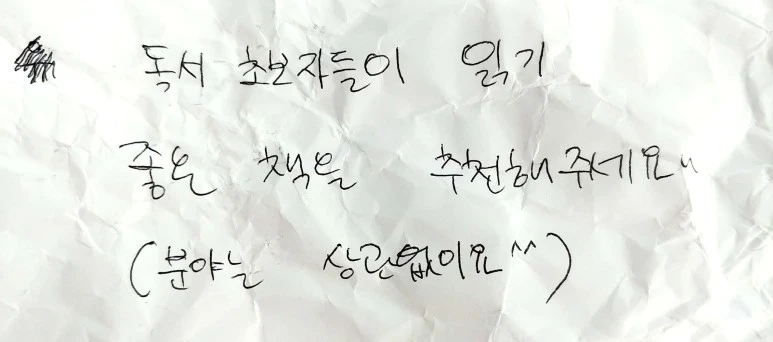 독서 초보자들이 읽기
좋은 책을 추천해주세요"
(분야는 상관없이요^^)